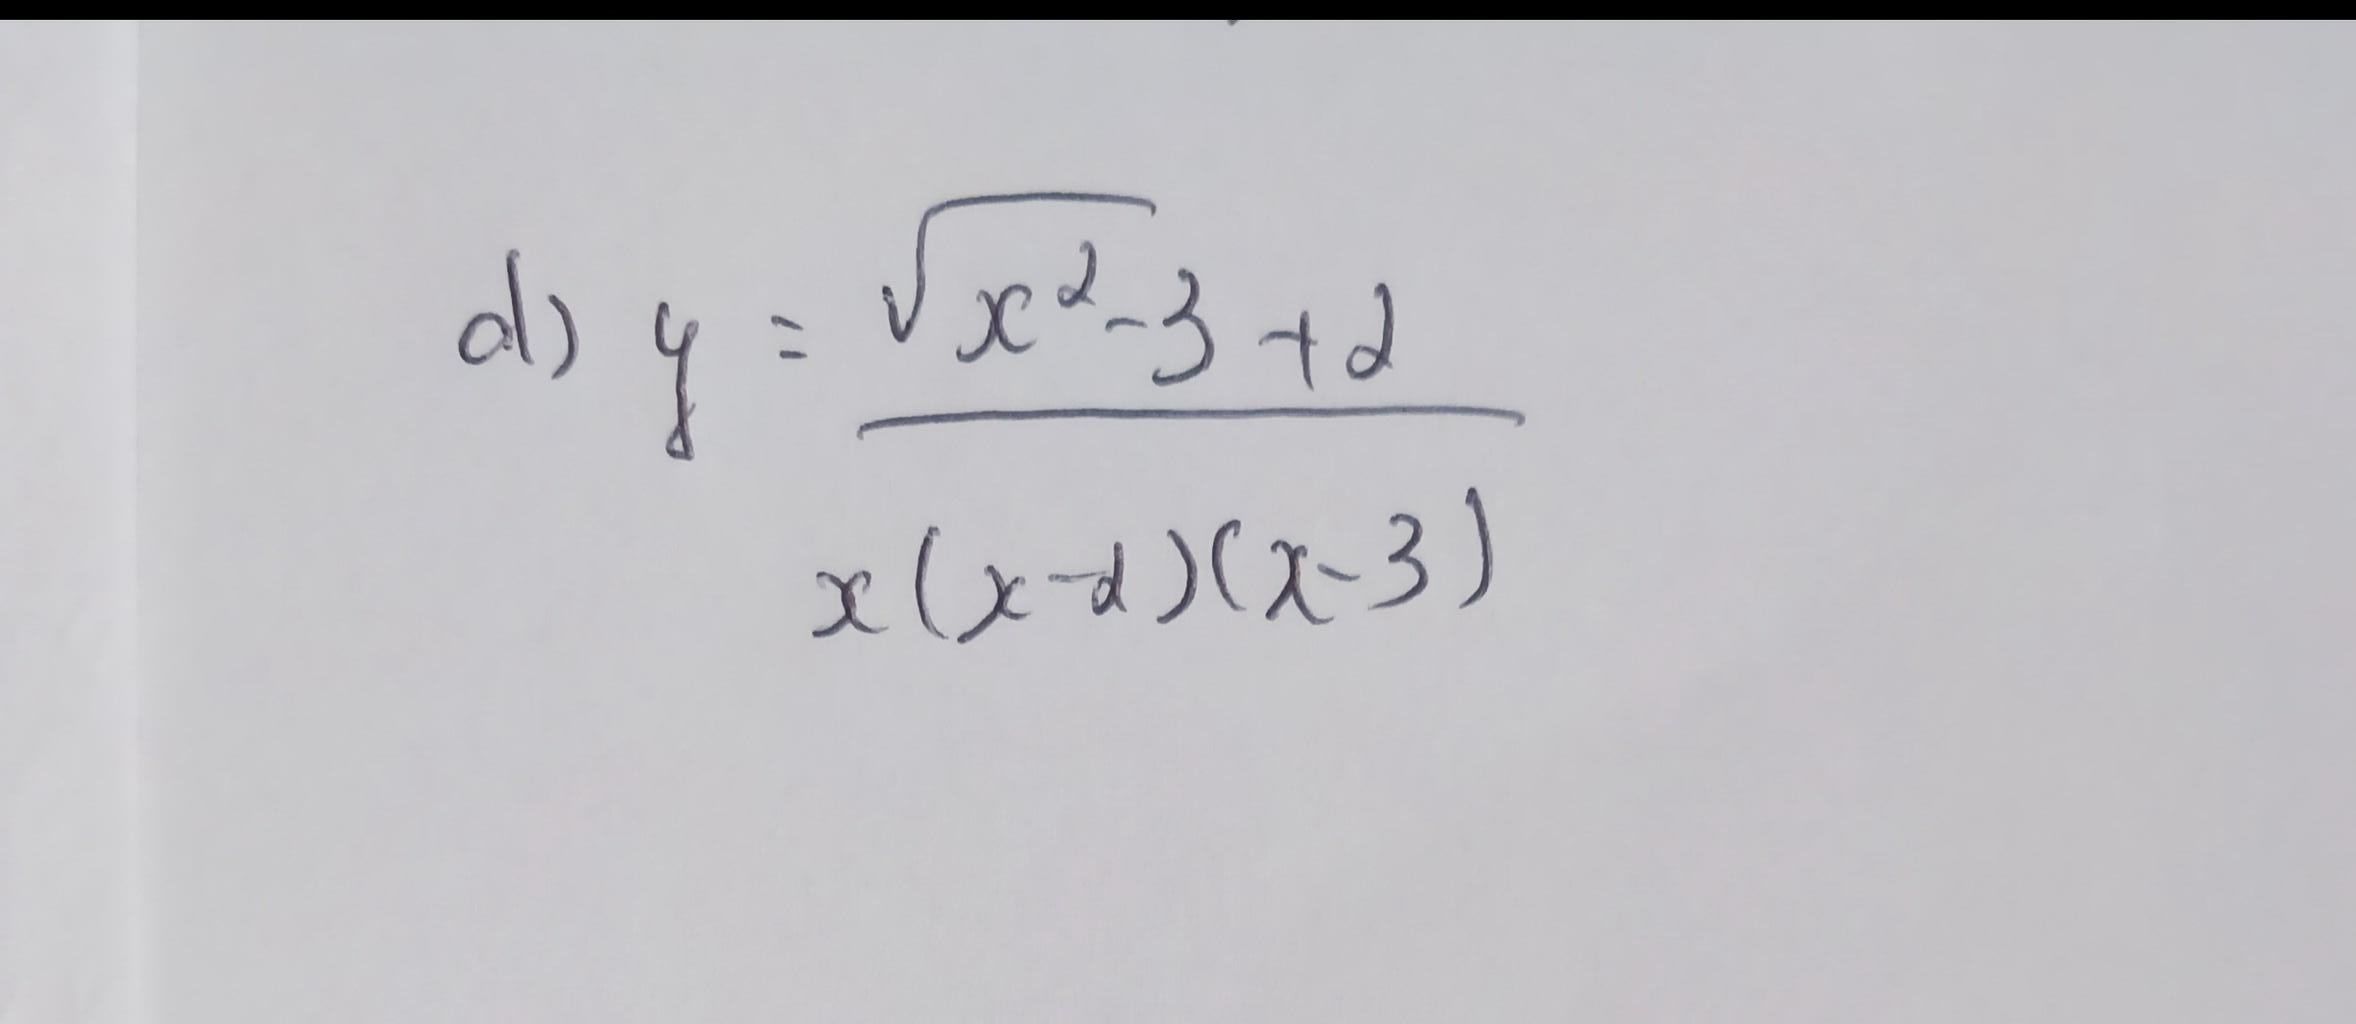 d) y = √x² - 3 + 2
x(x-2)(x-3)